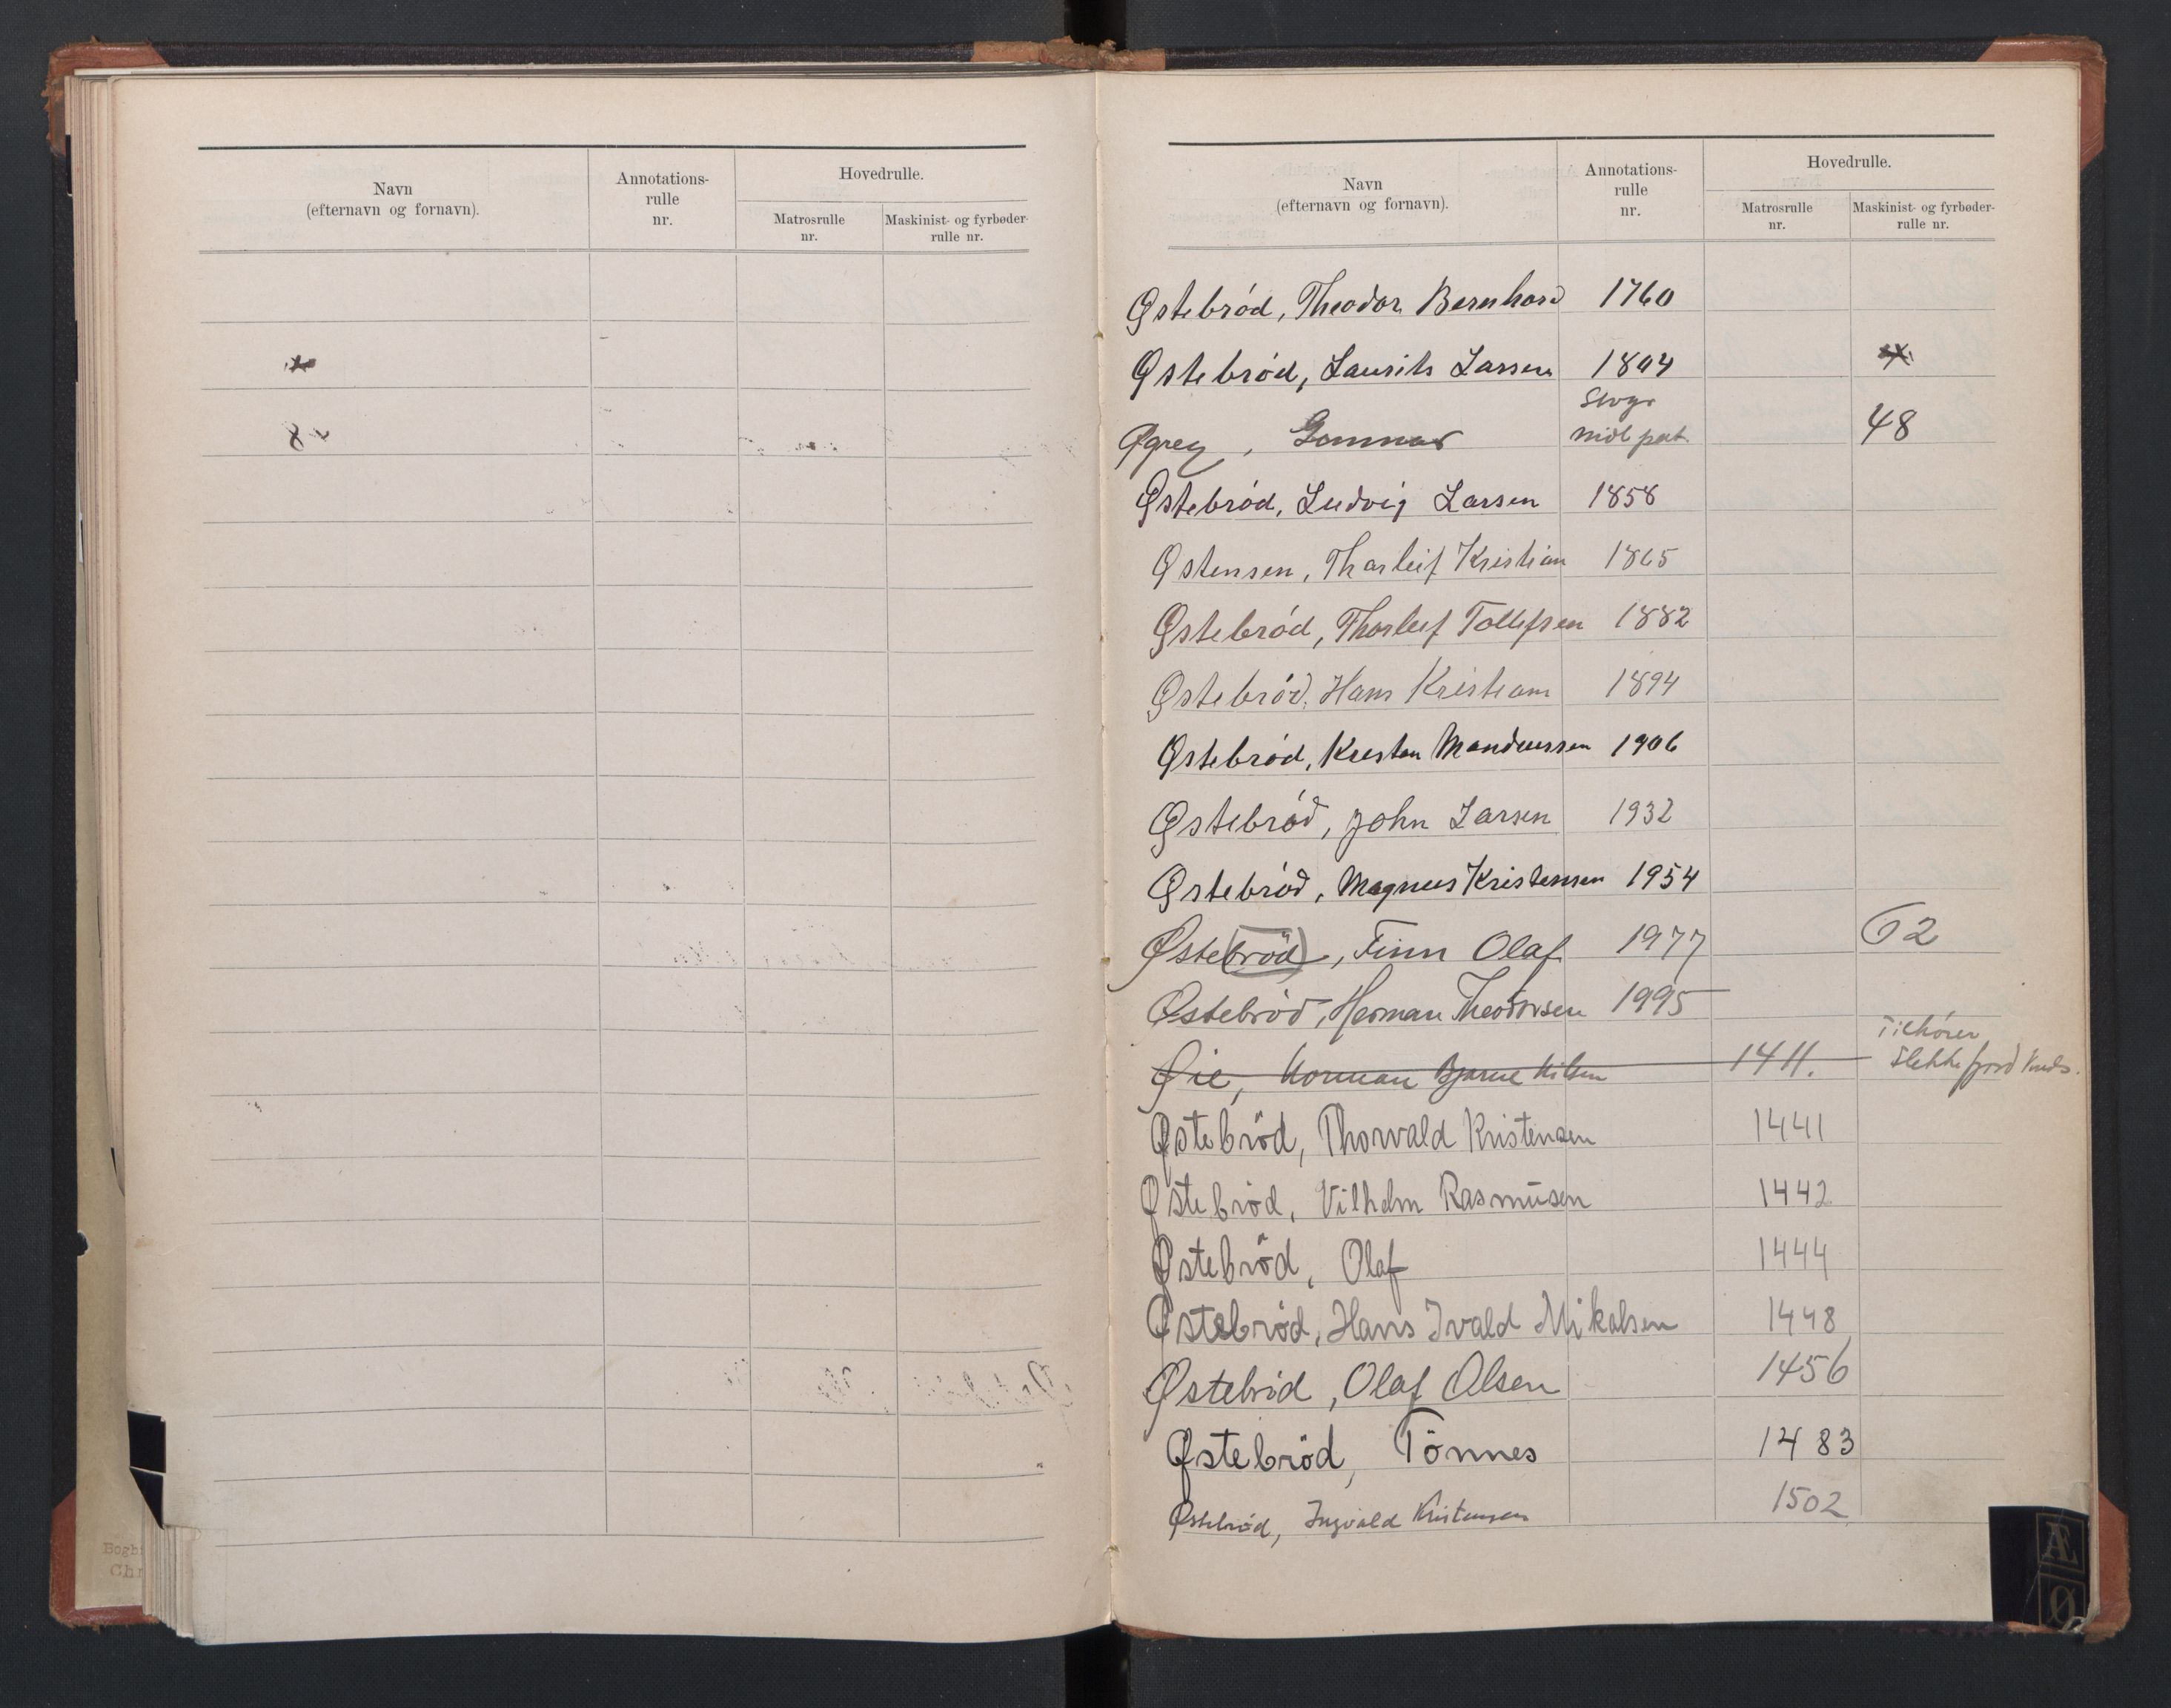 Navn
(efternavn og fornavn).
Annotations-
rulle
nr.
Hovedrulle.
Matrosrulle
nr.
Maskinist- og fyrbøder-
rulle nr.
Navn
(efternavn og fornavn).
Annotations-
rulle
nr.
Hovedrulle.
Matrosrulle
nr.
Maskinist- og fyrbøder-
rulle nr.
Østebröd, Theodor Bernhard 1760
Østebröd, Laurits Larsen 1804
Øgrey, Gunnar 48
Østebröd, Ludvig Larsen 1858
Østensen, Thorleif Kristian 1865
Østebröd, Thorleif Tollefsen 1882
Østebröd, Hans Kristian 1894
Østebröd, Kristen Mandiussen 1906
Østebröd, John Larsen 1932
Østebröd, Magnus Kristensen 1954
Øste(bröd), Finn Olaf 1977 62
Østebröd, Herman Theodorsen 1995
Øie, Norman Bjarne Nilsen 1411. Tilhører Flekkefjord
Østebröd, Thorvald Kristensen 1441
Østebröd, Vilhelm Rasmusen 1442
Østebröd, Olaf 1444
Østebröd, Hans Ivald Mikalsen 1448
Østebröd, Olaf Olsen 1456
Østebröd, Tönnes 1483
Østebröd, Ingvald Kristensen 1502
Æ
Ø